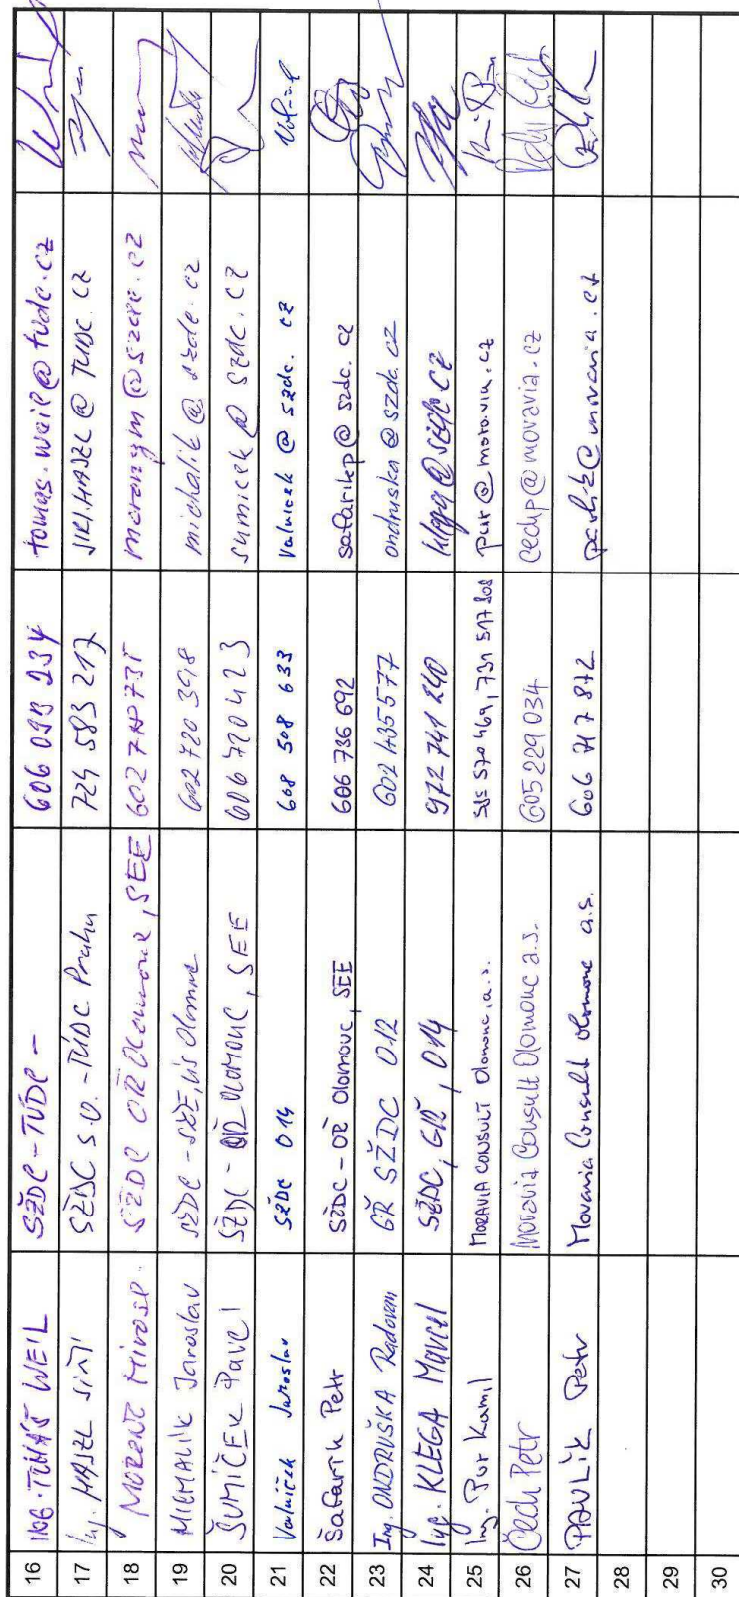 16 ING. TOMÁŠ WEIL SŽDC - TÚDC - 606 093 234 tomas.weil@tudc.cz
17 Ing. HÁJEK JIŘÍ SŽDC s.o. - TÚDC Praha 724 583 217 JIRI.HAJEK @ TUDC.CZ
18 SŽDC OŘ Olomouc, SEE
19 MICHALÍK Jaroslav SŽDC - 602 720 398 michalik @ szdc.cz
20 ŠUMÍČEK Pavel SŽDC - OŘ OLOMOUC, SEE 606 720 423 sumicek @ szdc.cz
21 Valníček Jaroslav SŽDC 014 608 508 633 valnicek @ szdc.cz
22 Šafařík Petr SŽDC - OŘ Olomouc, SEE 606 736 692 safarikp@szdc.cz
23 Ing. ONDRUŠKA Radovan GŘ SŽDC O12 ondruska@szdc.cz
24 Ing. KLEGA Marcel SŽDC, GŘ, O14 972 741 240
25 Ing. Pur Kamil MORAVIA CONSULT Olomouc, a.s. 585 570 469, 731 517 pur@moravia.cz
26 Čech Petr Moravia Consult Olomouc a.s. 605 229 034 cechp@moravia.cz
27 PAVLÍK Petr Moravia Consult Olomouc a.s. 606 717 872 pavlik@moravia.cz
28
29
30